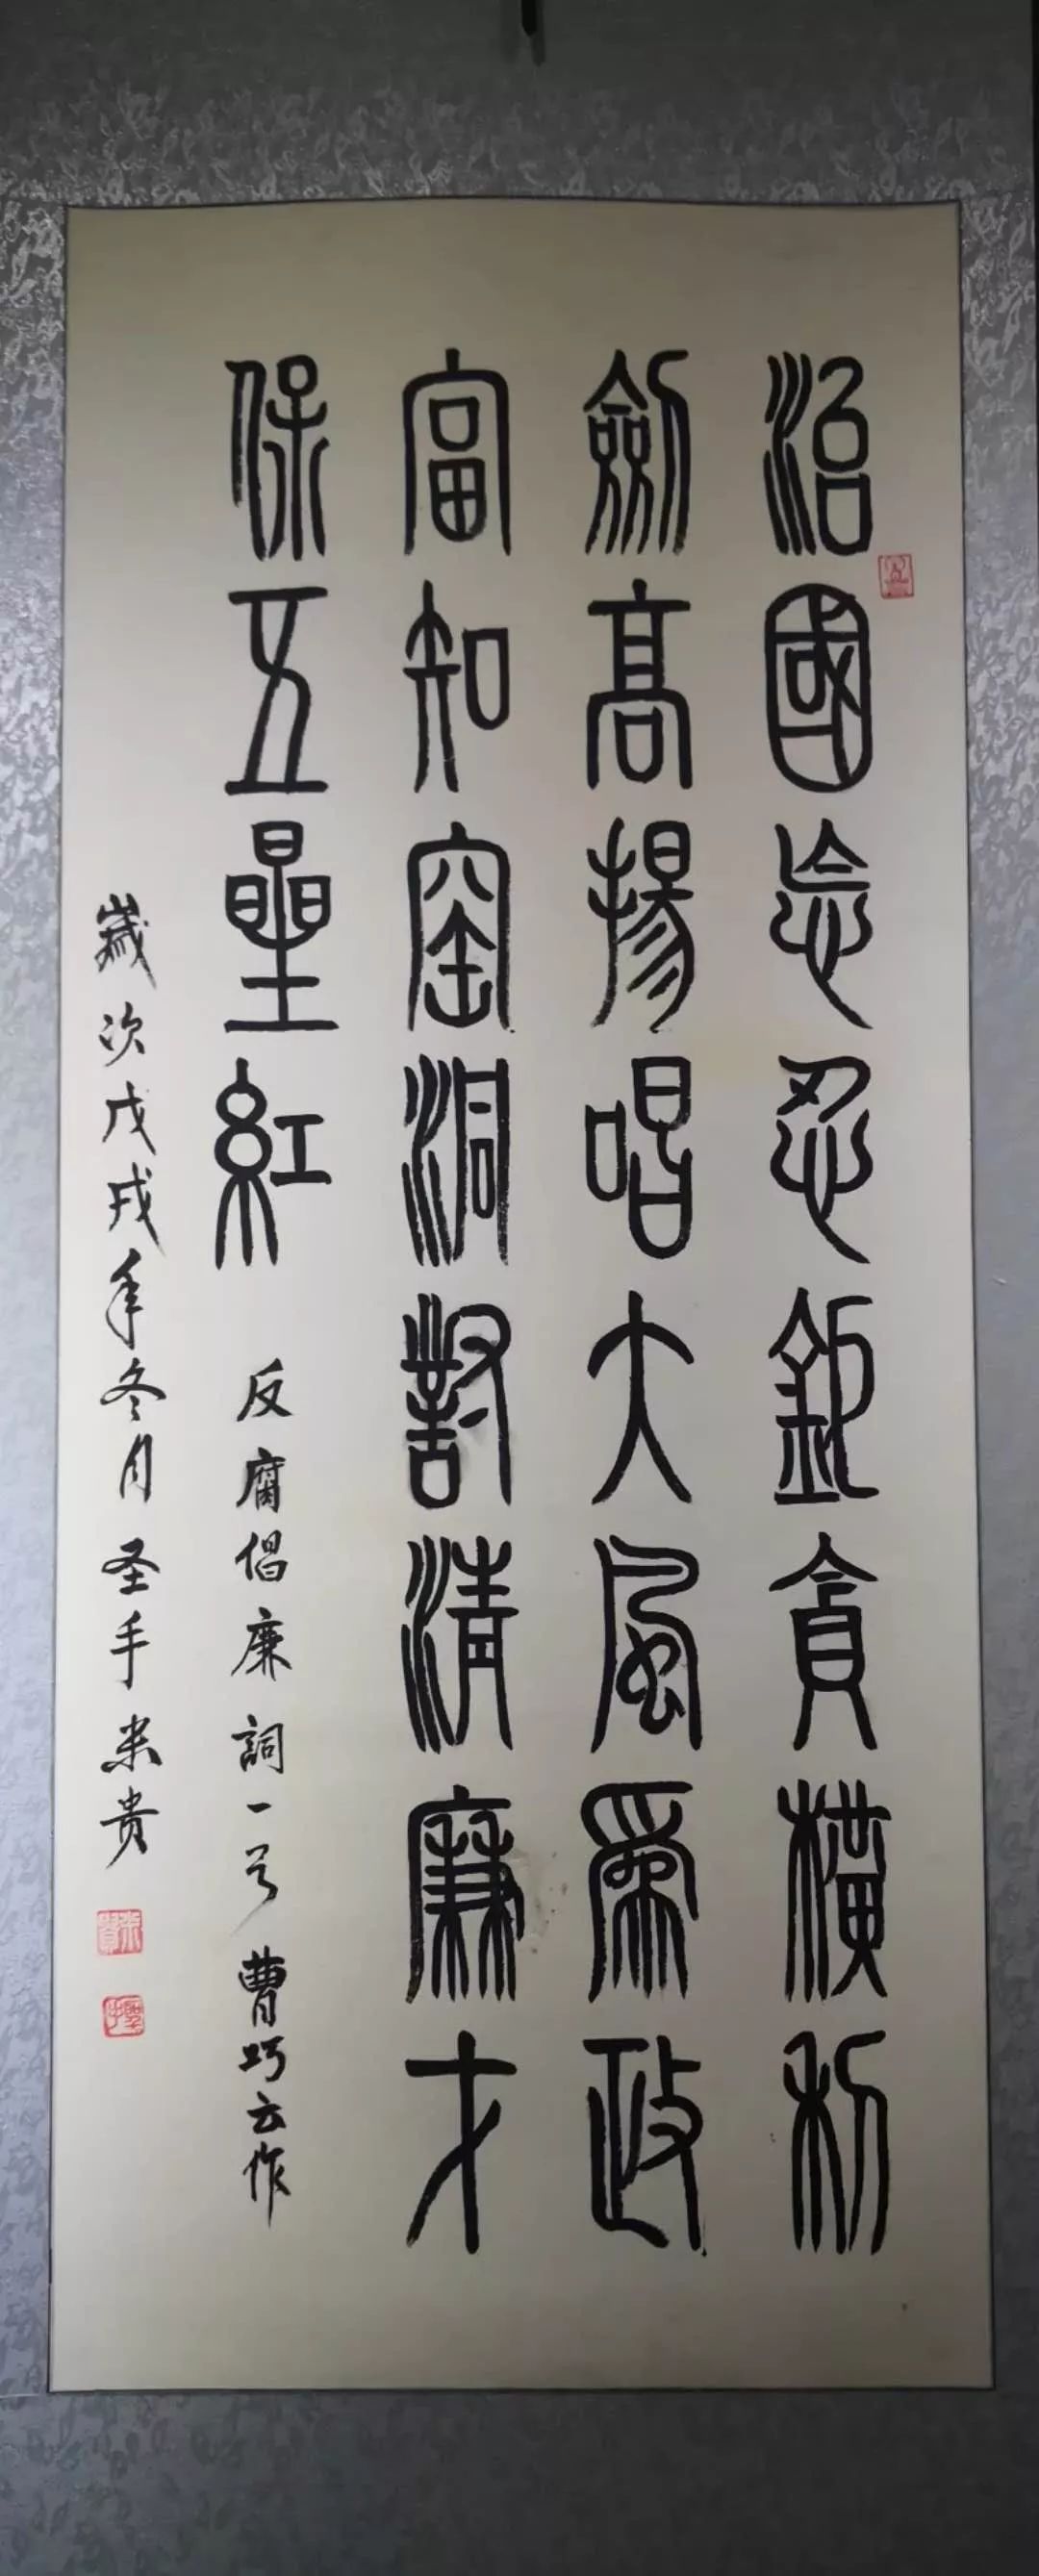 治國怎忍鉅貪橫利
劍高揚唱大風為政
富知窑洞對清廉才
保五星紅 反腐倡廉詞一首 曹巧云作
歲次戊戌年冬月圣手来贵